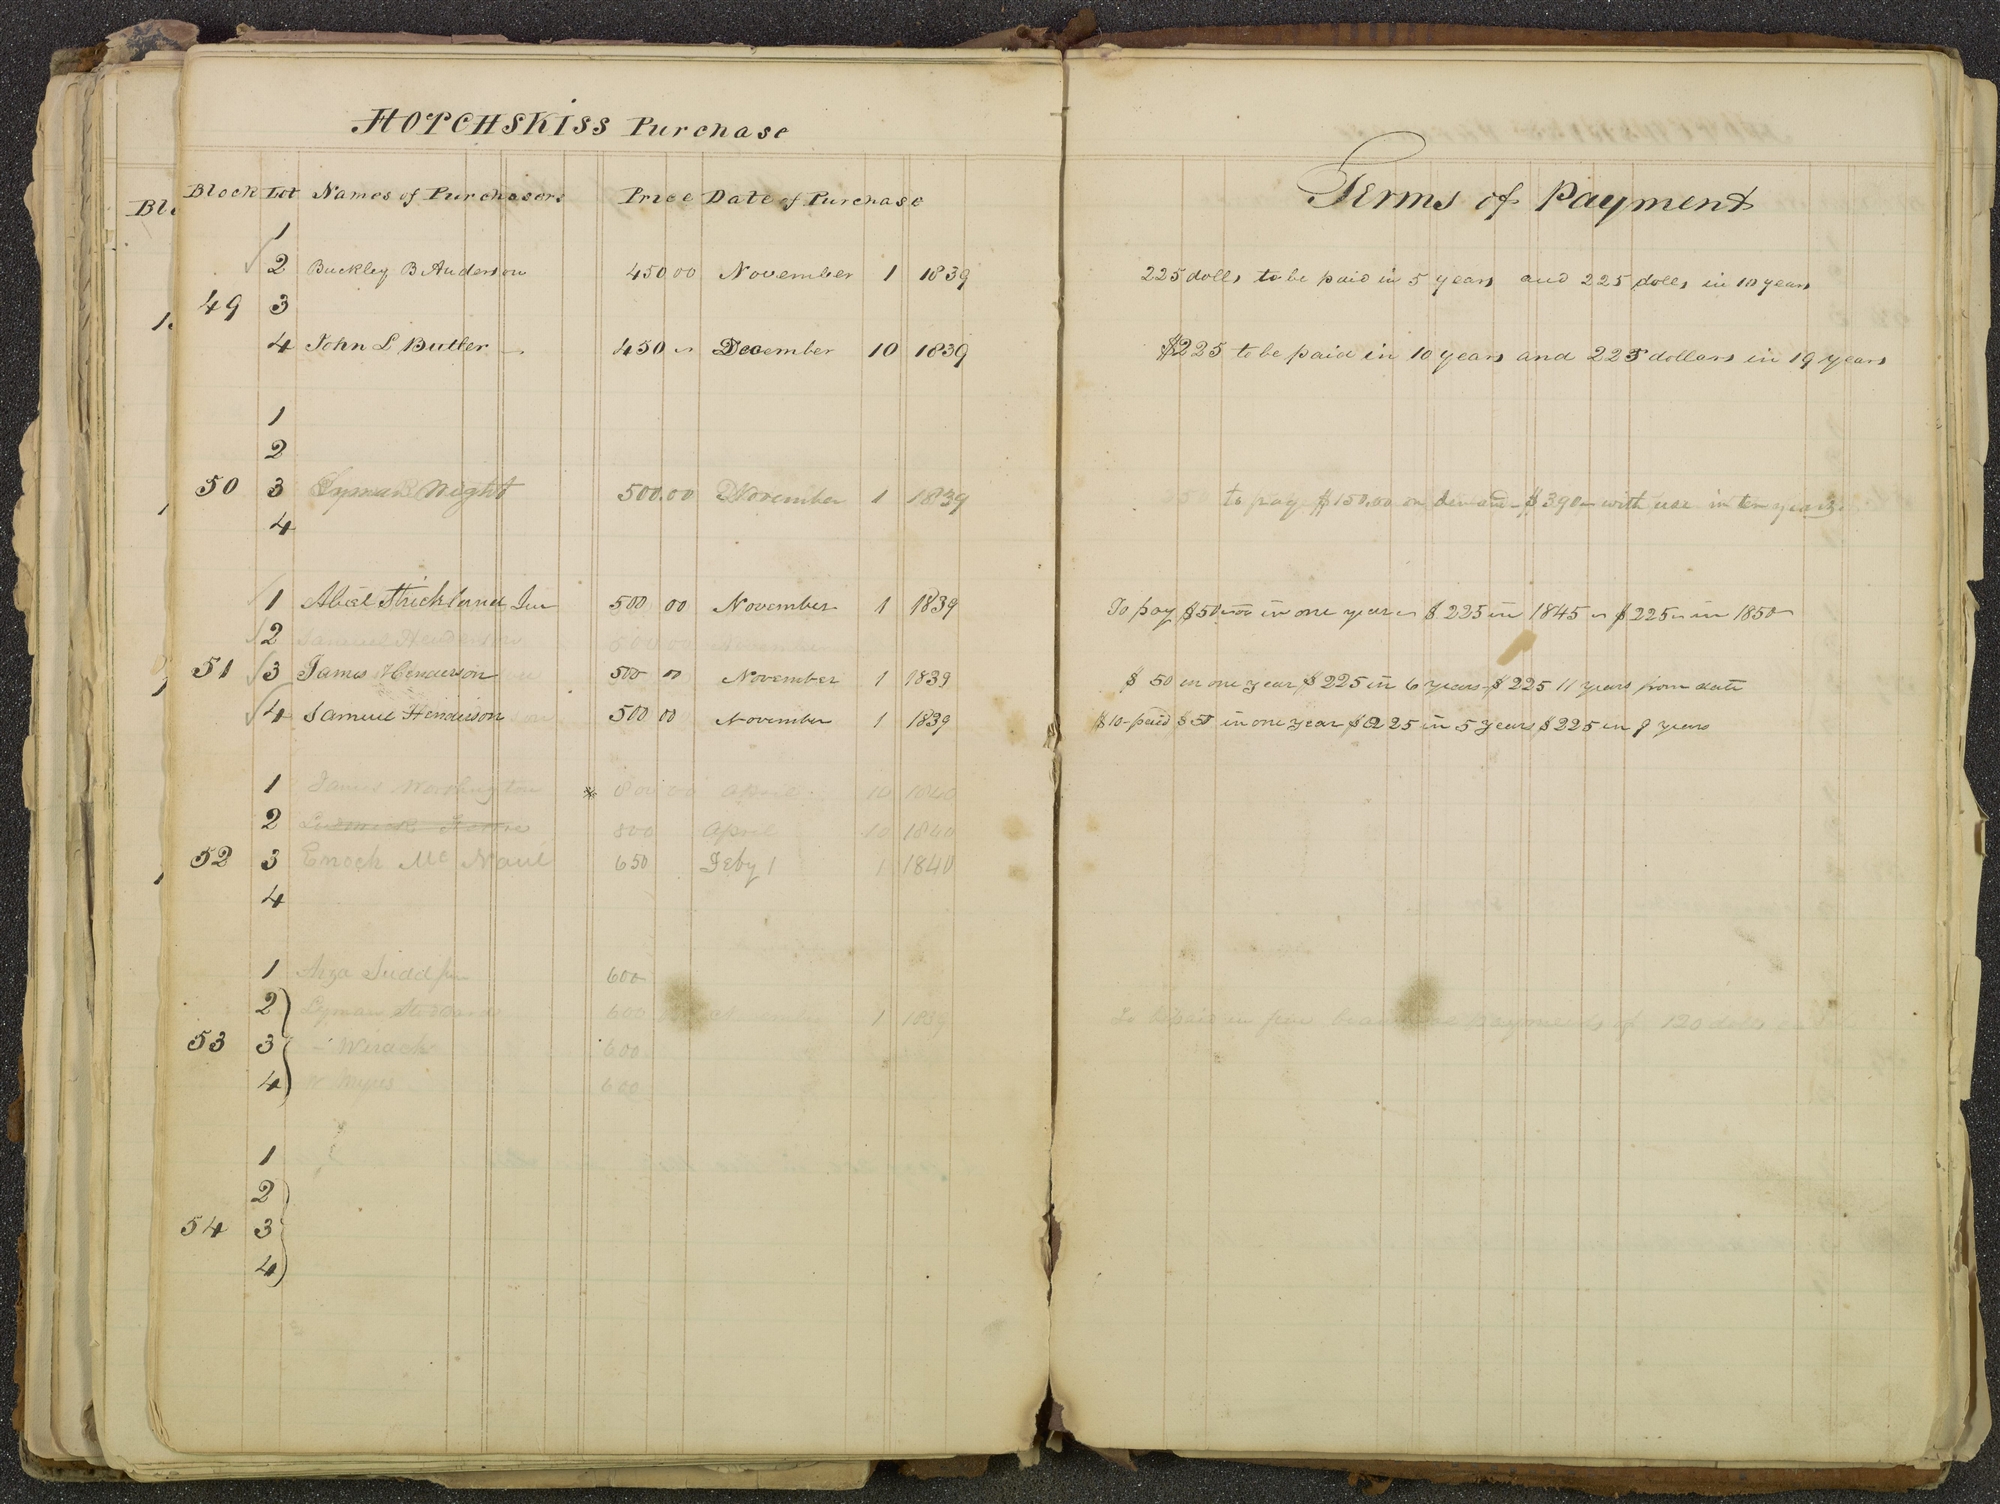 HOTCHSKISS Purchase
Block Lot Names of Purchasers Price Date of Purchase Terms of Payment
1
2 Buckley B Anderson 450.00 November 1 1839 225 dolls to be paid in 5 years and 225 dolls in 10 years
49 3
4 John L Butler 450 " December 10 1839 $225 to be paid in 10 years and 225 dollars in 19 years
1
2
50 3 Night 500.00 November 1 1839 to pay $150.00 on demand - $390 - with use in ten years
4
1 Abiel Strickland Jun 500 00 November 1 1839 To pay $50 in one year $225 in 1845 " $225 " in 1850
2 Samuel Henderson 500.00 November
51 3 James Henderson 500 00 November 1 1839 $50 in one year $225 in 6 years $225 11 years from date
4 Samuel Henderson 500 00 November 1 1839 $10 paid $50 in one year $225 in 5 years $225 in 9 years
1 James Worthington * 800 00 April 10 1840
2 800 April 10 1840
52 3 Enoch Mc Naul 650 Feby 1 1 1840
4
1 Arza Judd Jun 600
2 Lyman 600 1 1839 To be paid in payments of 120 dolls
53 3 600
4 600
1
2
54 3
4